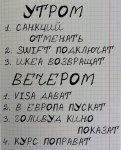 УТРОМ
1. САНКЦИЙ
ОТМЕНЯТЬ
2. SWIFT ПОДКЛЮЧАТ
3. ИКЕА ВОЗВРАЩАТ
ВЕЧЕРОМ
1. VISA ДАВАТ
2. В ЕВРОПА ПУСКАТ
3. ГОЛИВУД КИНО
ПОКАЗАТ
4. КУРС ПОПРАВАТ